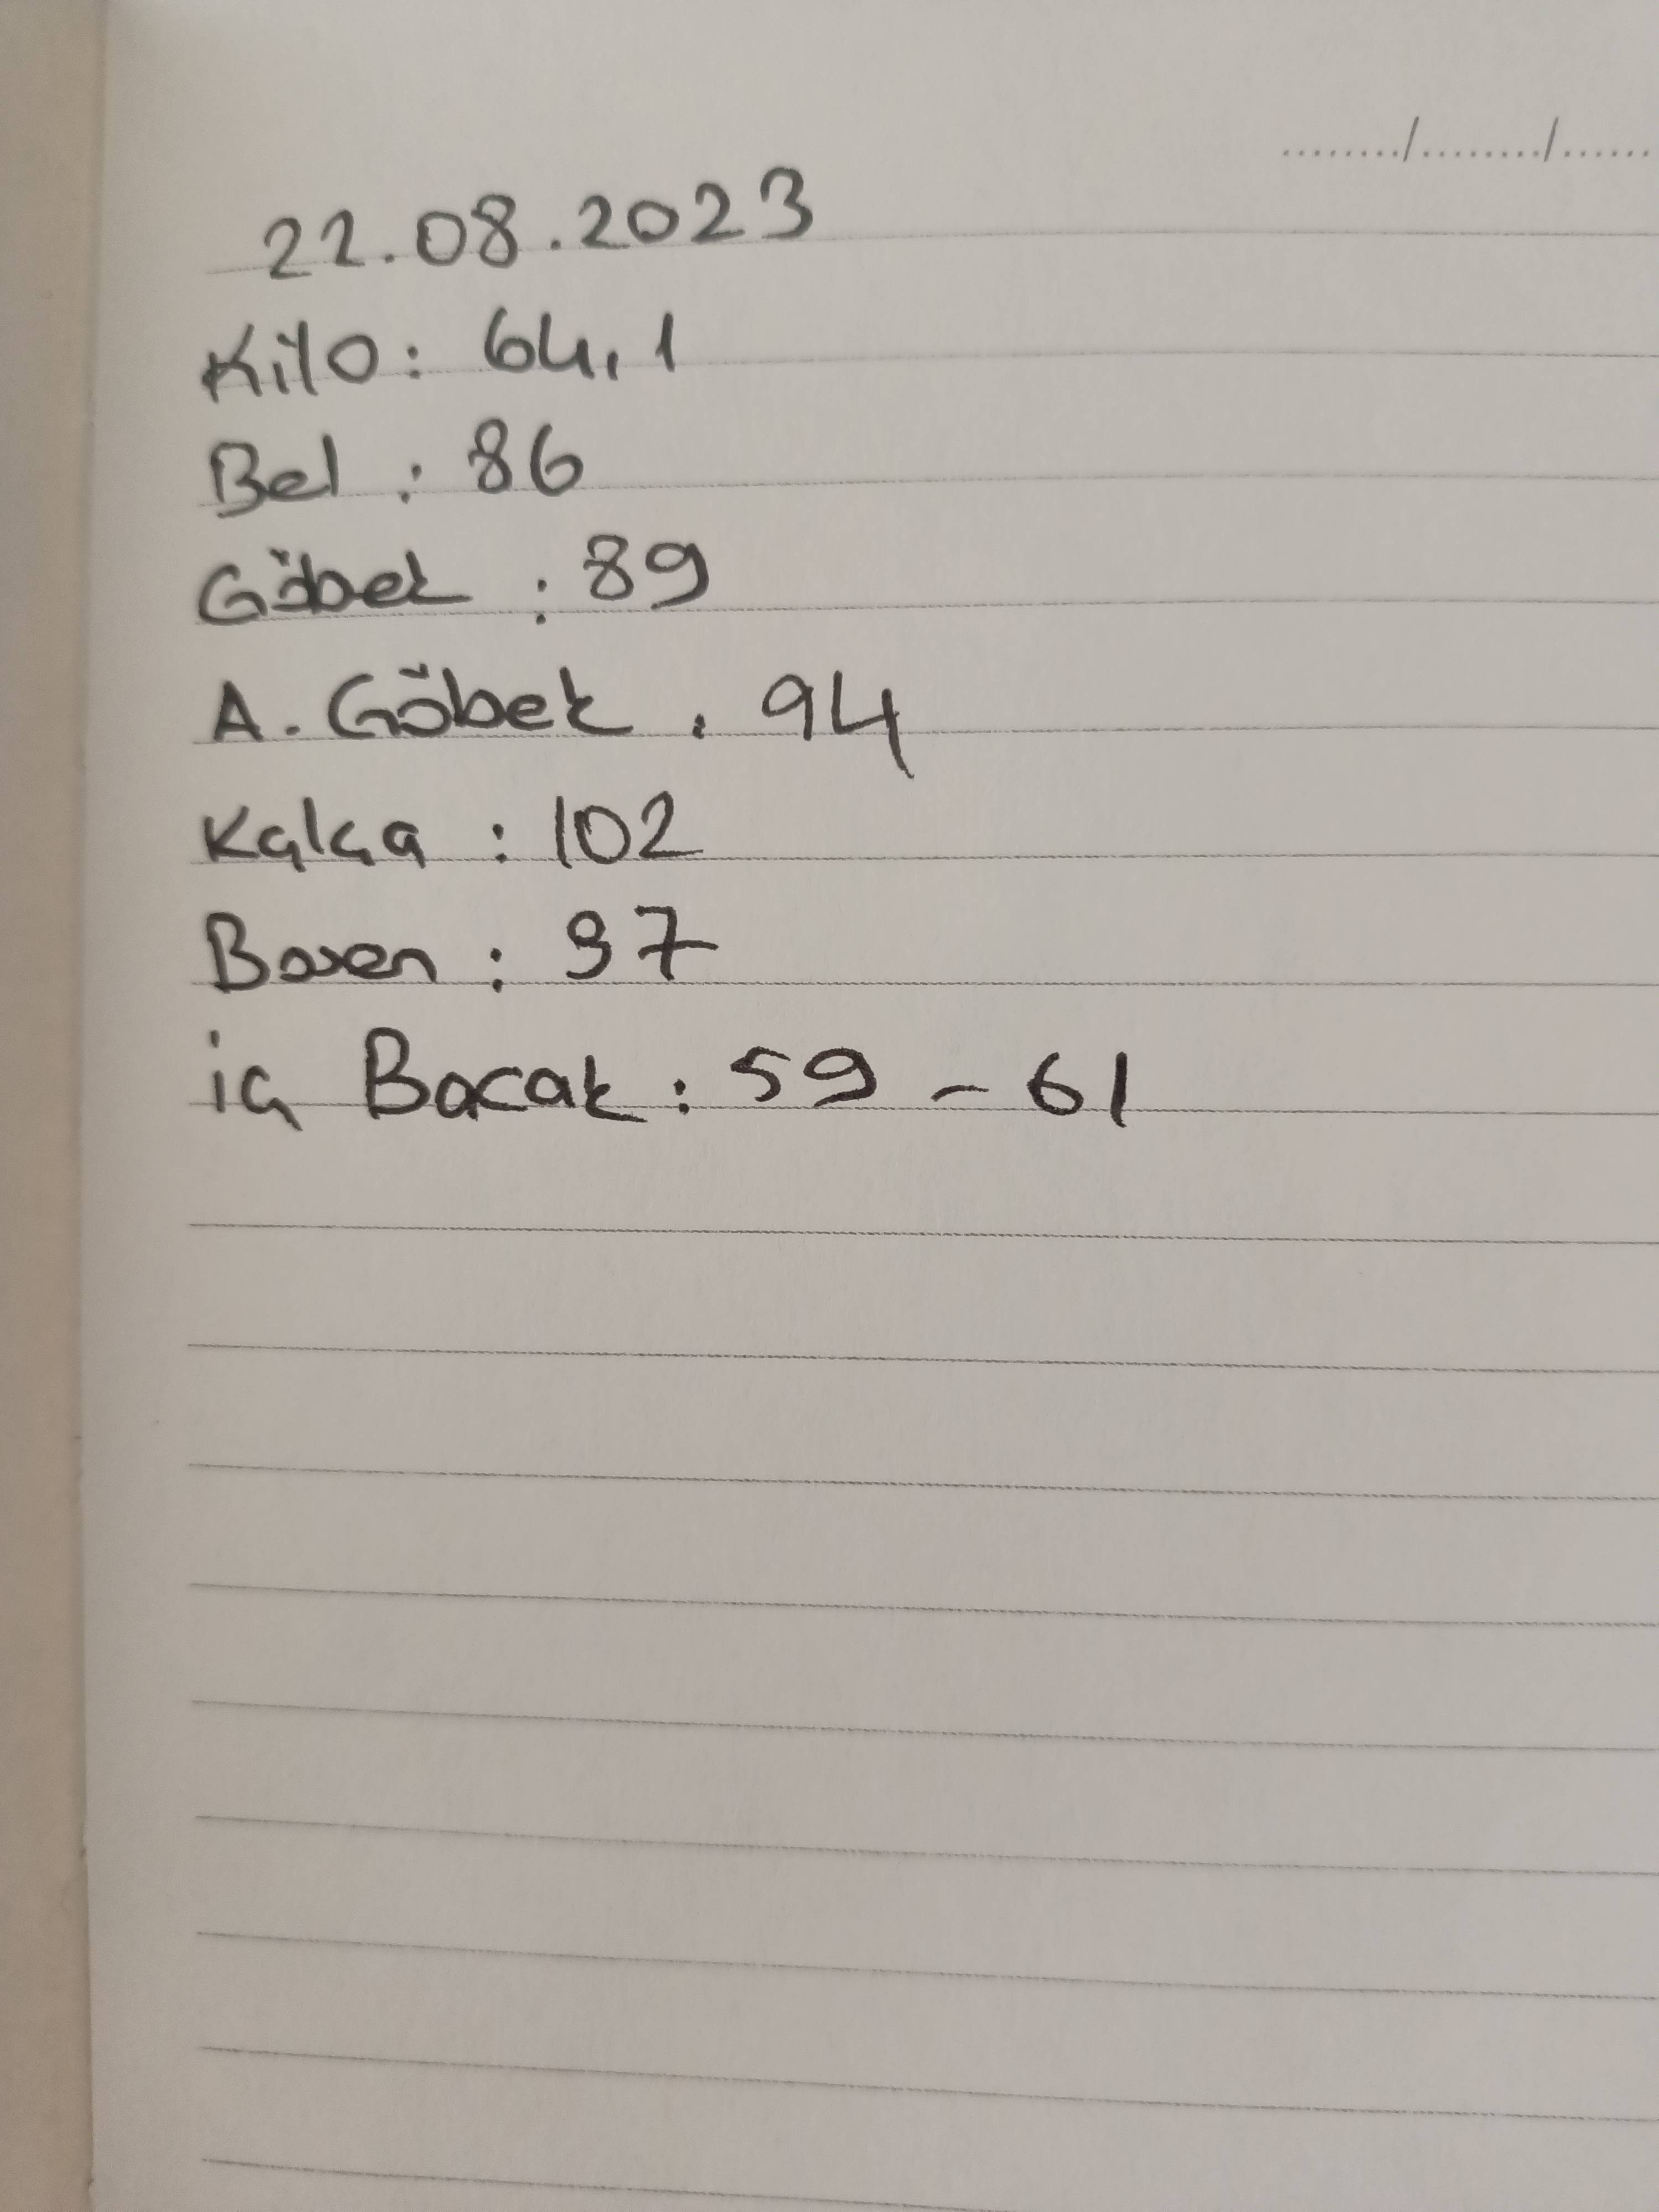 ......../......../......
22.08.2023
Kilo: 64,1
Bel : 86
Göbek : 89
A. Göbek : 94
Kalça : 102
Basen : 97
iç Bacak : 59 - 61